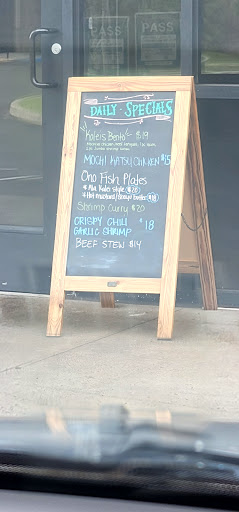 PASS
PASS
DAILY SPECIALS
Kalei's Bento - $19
MOCHI KATSU CHICKEN $15
Ono Fish Plates
* Ala Kalei style ($20)
Shrimp Curry $20
CRISPY CHILI $18
GARLIC SHRIMP
BEEF STEW $14